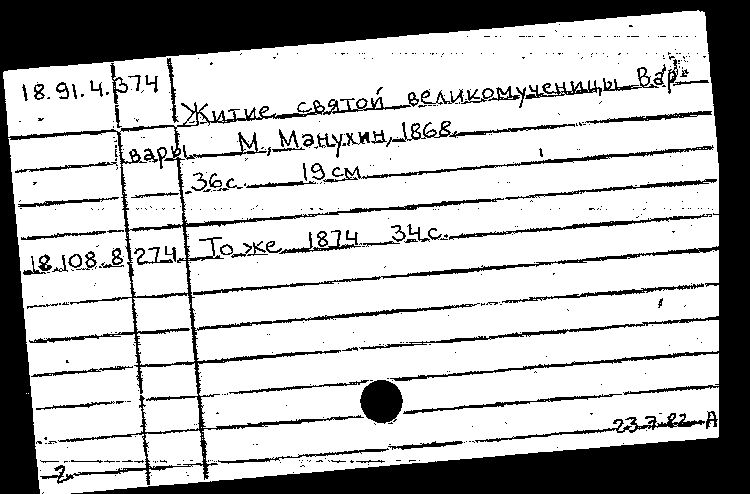 18.91.4.374
Житие святой великомученицы Вар-
вары М., Манухин, 1868.
36с. 19см.
18.108.8.274. То же. 1874. 34с.
23.7.82. А
2